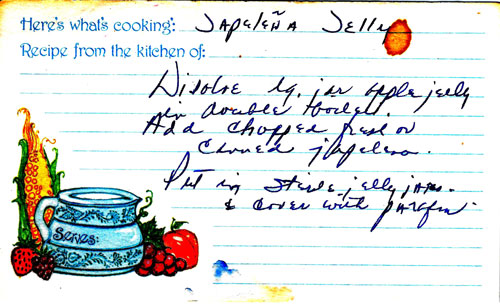 Here's what's cooking: Japeleña Jelly
Recipe from the kitchen of:
Disolve lg. jar apple jelly
in double boiler.
Add chopped fresh or
canned japeleno.
Put in sterile jelly jars.
& cover with parafin.
Serves: